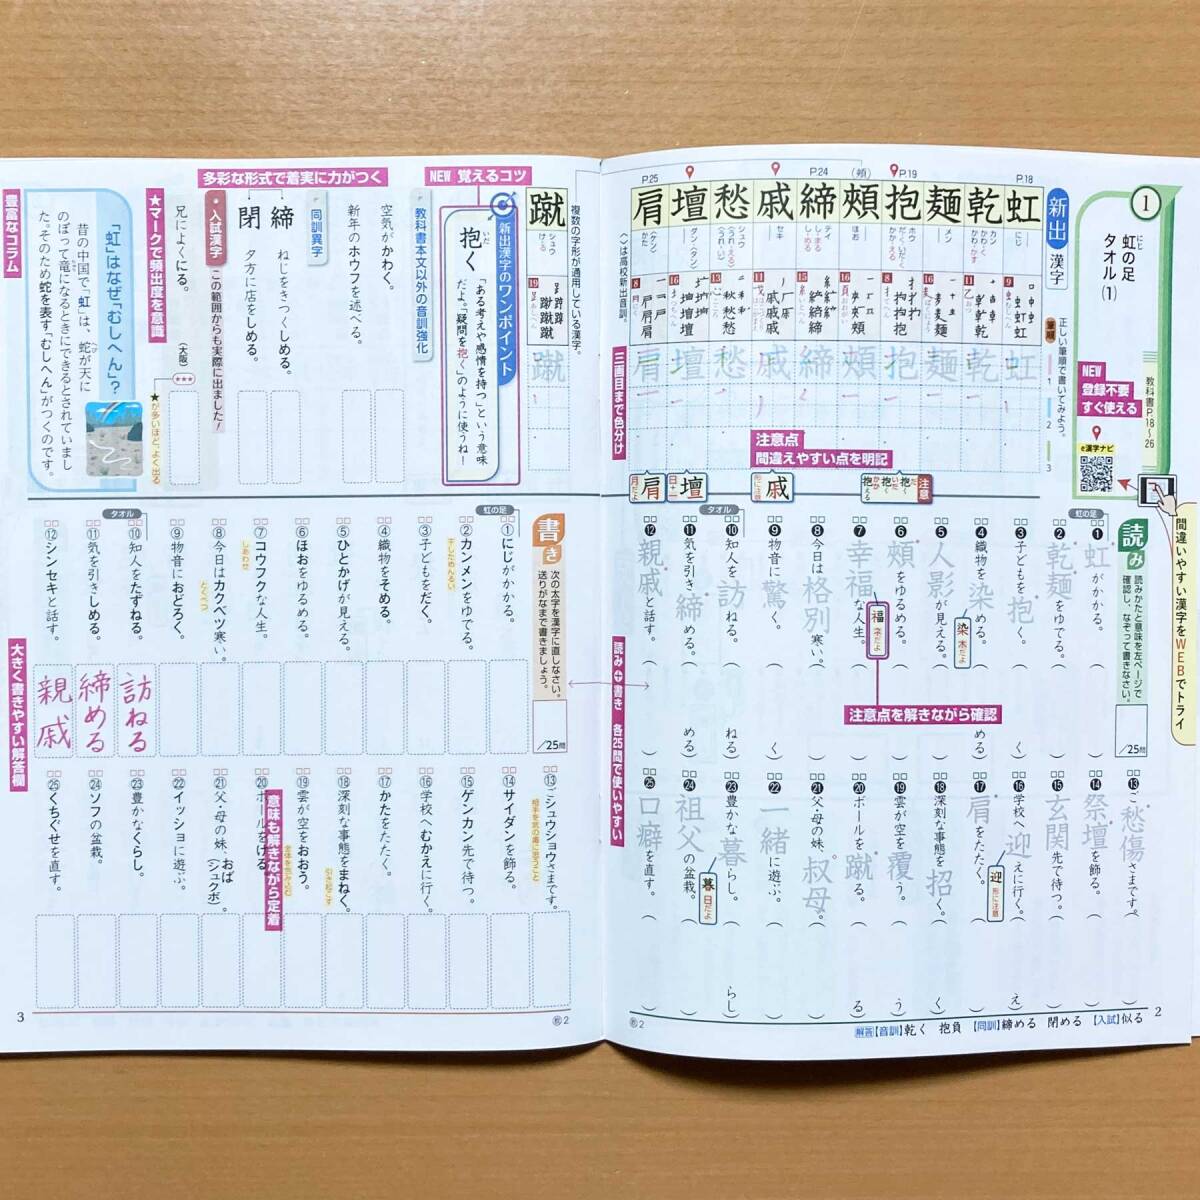 1
虹の足
タオル(1)
教科書P.18〜26
NEW
登録不要
すぐ使える
e漢字ナビ
間違いやすい漢字をWEBでトライ
新出漢字
正しい筆順で書いてみよう。
筆順
1
2
3
P.18
P.19
(頬)
P.24
P.25
虹
にじ
乾
カン
かわく
かわかす
麺
メン
抱
ホウ
だく・いだく
かかえる
頬
ほお
締
テイ
しまる
しめる
戚
セキ
愁
シュウ
(うれえる)
(うれい)
壇
ダン・〈タン〉
肩
〈ケン〉
かた
蹴
シュウ
ける
〈 〉は高校新出音訓。
複数の字形が通用している漢字。
三画目まで色分け
注意点
間違えやすい点を明記
注意
抱く
抱く
抱える
戚
形に注意
壇
肩
月だよ
読み
読みかたと意味を左ページで確認し、なぞって書きなさい。
/25問
虹の足
❶虹がかかる。
❷乾麺をゆでる。
❸子どもを抱く。
❹織物を染める。
染 木だよ
❺人影が見える。
❻頬をゆるめる。
❼幸福な人生。
福 ネだよ
❽今日は格別寒い。
❾物音に驚く。
タオル
❿知人を訪ねる。
⓫気を引き締める。
⓬親戚と話す。
⓭ご愁傷さまです。
⓮祭壇を飾る。
⓯玄関先で待つ。
⓰学校へ迎えに行く。
迎 形に注意
⓱肩をたたく。
⓲深刻な事態を招く。
⓳雲が空を覆う。
⓴ボールを蹴る。
㉑父・母の妹、叔母。
㉒一緒に遊ぶ。
㉓豊かな暮らし。
暮 日だよ
㉔祖父の盆栽。
㉕口癖を直す。
注意点を解きながら確認
読み+書き 各25問で使いやすい
解答【音訓】乾く 抱負 【同訓】締める 閉める 【入試】似る
2
㊗2
NEW 覚えるコツ
新出漢字のワンポイント
抱く
いだ
「ある考えや感情を持つ」という意味だよ。「疑問を抱く」のように使うね!
多彩な形式で着実に力がつく
教科書本文以外の音訓強化
空気がかわく。
新年のホウフを述べる。
同訓異字
締 ねじをきつくしめる。
閉 夕方に店をしめる。
入試漢字 この範囲からも実際に出ました!
兄によくにる。
(大阪)
★★★
★が多いほど、よく出る
★マークで頻出度を意識
「虹」はなぜ「むしへん」?
昔の中国で「虹」は、蛇が天にのぼって竜になるときにできるとされていました。そのため蛇を表す「むしへん」がつくのです。
豊富なコラム
書き
次の太字を漢字に直しなさい。送りがなまで書きましょう。
/25問
虹の足
①にじがかかる。
②カンメンをゆでる。
干しためんるい
③子どもをだく。
④織物をそめる。
⑤ひとかげが見える。
⑥ほおをゆるめる。
⑦コウフクな人生。
しあわせ
⑧今日はカクベツ寒い。
とくべつ
⑨物音におどろく。
タオル
⑩知人をたずねる。
訪ねる
⑪気を引きしめる。
締める
⑫シンセキと話す。
親戚
⑬ごシュウショウさまです。
相手を気の毒に思うこと
⑭サイダンを飾る。
⑮ゲンカン先で待つ。
⑯学校へむかえに行く。
⑰かたをたたく。
⑱深刻な事態をまねく。
引き起こす
⑲雲が空をおおう。
全体を包み込む
⑳ボールをける
㉑父・母の妹、おば(シュクボ)。
㉒イッショに遊ぶ。
㉓豊かなくらし。
㉔ソフの盆栽。
㉕くちぐせを直す。
意味も解きながら定着
大きく書きやすい解答欄
3